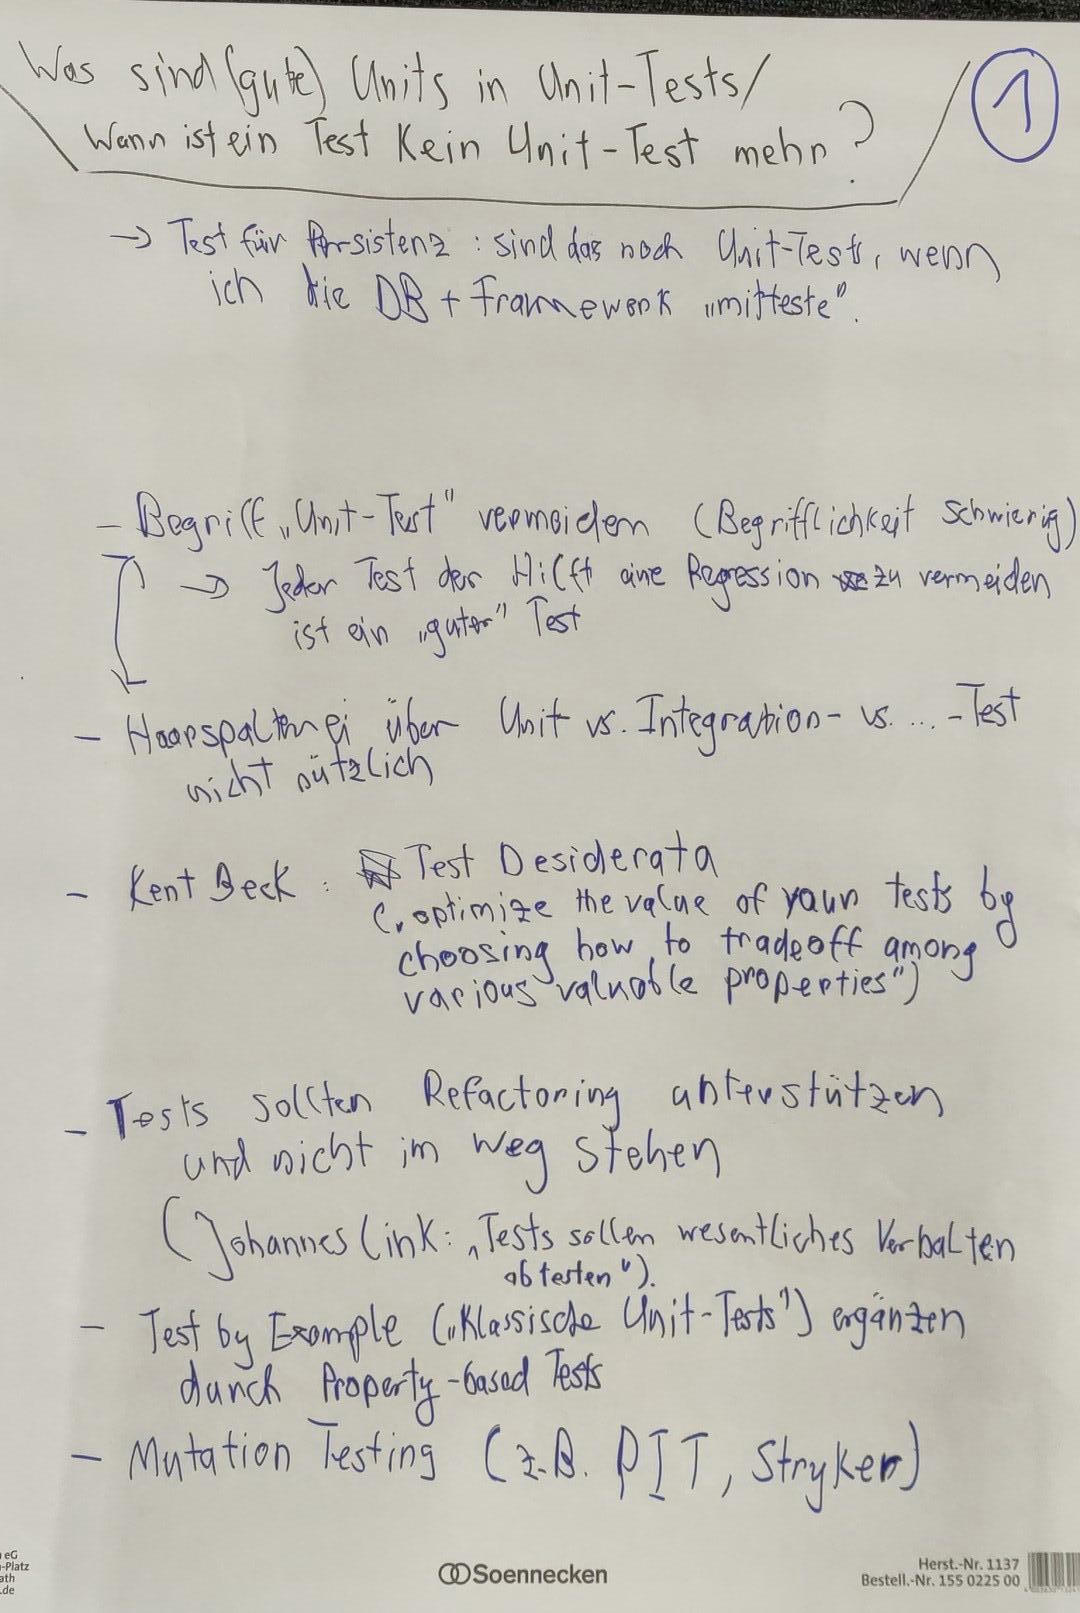 Was sind (gute) Units in Unit-Tests/
Wann ist ein Test Kein Unit-Test mehr?
1
→ Test für Persistenz: sind das noch Unit-Tests, wenn
ich die DB + Framework „mitteste".
- Begriff „Unit-Test" vermeiden (Begrifflichkeit schwierig)
→ Jeder Test der Hilft eine Regression zu vermeiden
ist ein „guter" Test
- Haarspalterei über Unit vs. Integration- vs. ... -Test
nicht nützlich
- Kent Beck: Test Desiderata
(„optimize the value of your tests by
choosing how to tradeoff among
various valuable properties")
- Tests sollten Refactoring unterstützen
und nicht im Weg stehen
(Johannes Link: „Tests sollen wesentliches Verhalten
abtesten").
- Test by Example („Klassische Unit-Tests") ergänzen
durch Property-based Tests
- Mutation Testing (z.B. PIT, Stryker)
eG
-Platz
ath
.de
Soennecken
Herst.-Nr. 1137
Bestell.-Nr. 155 0225 00